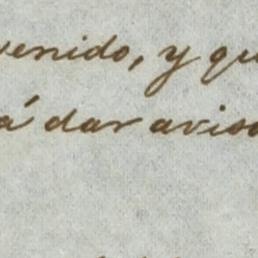 venido, y qu
á dar aviso